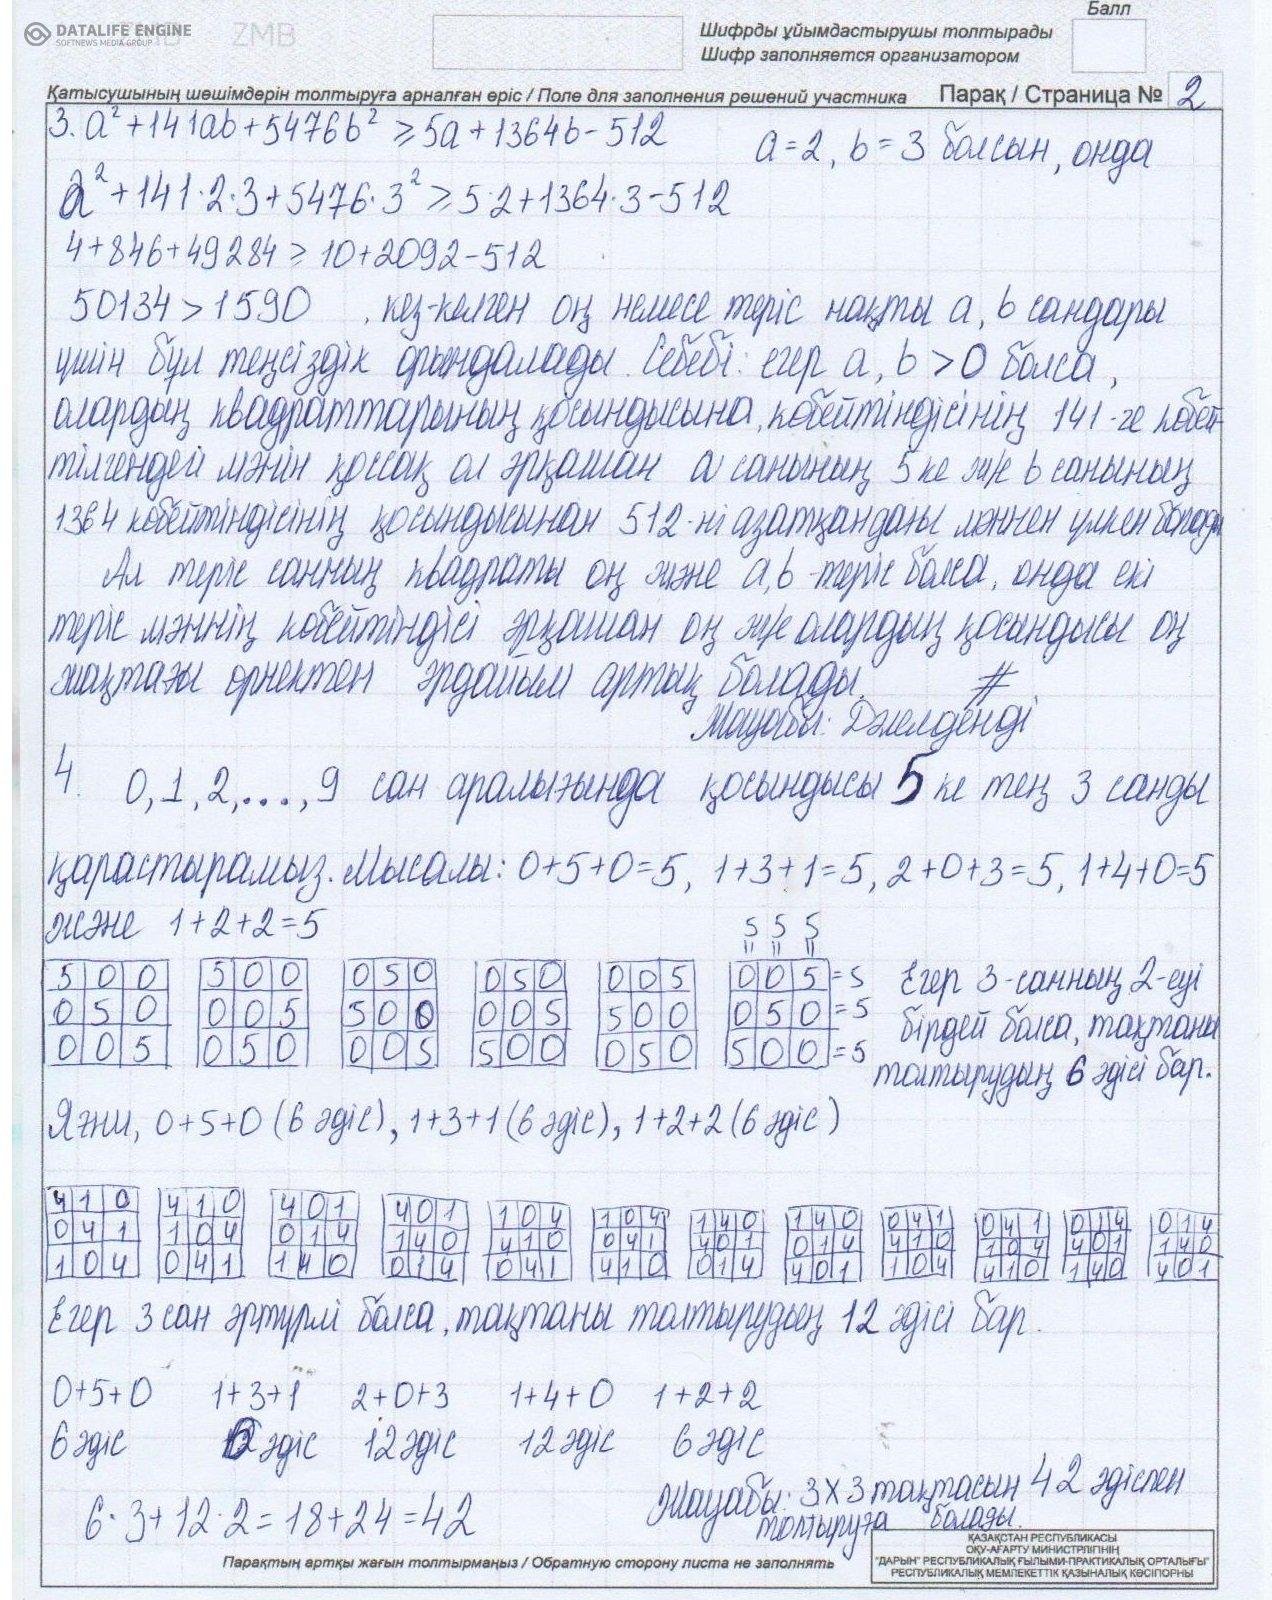 DATALIFE ENGINE
SOFTNEWS MEDIA GROUP
ZMB
Балл
Шифрды ұйымдастырушы толтырады
Шифр заполняется организатором
Қатысушының шешімдерін толтыруға арналған өріс / Поле для заполнения решений участника Парақ / Страница № 2
3. a²+141ab+5476b² ≥ 5a+1364b-512
a=2, b=3 болсын, онда
2²+141·2·3+5476·3² ≥ 5·2+1364·3-512
4+846+49284 ≥ 10+2092-512
50134 > 1590 , кез-келген оң немесе теріс нақты a, b сандары
үшін бұл теңсіздік орындалады. Себебі: егер a, b > 0 болса,
олардың квадраттарының қосындысына, көбейтіндісінің 141-ге көбей-
тілгендей мәнін қоссақ ол әрқашан a санының 5 ке ж/е b санының
1364 көбейтіндісінің қосындысынан 512-ні азатқандағы мәннен үлкен болады
Ал теріс санның квадраты оң және a,b-теріс болса, онда екі
теріс мәннің көбейтіндісі әрқашан оң ж/е олардың қосындысы оң
жақтағы өрнектен әрдайым артық болады. #
Жауабы: Дәлелденді
4. 0, 1, 2, ..., 9 сан аралығында қосындысы 5 ке тең 3 санды
қарастырамыз. Мысалы: 0+5+0=5, 1+3+1=5, 2+0+3=5, 1+4+0=5
және 1+2+2=5
5 5 5
|| || ||
5 0 0 5 0 0 0 5 0 0 5 0 0 0 5 0 0 5 =5
0 5 0 0 0 5 5 0 0 0 0 5 5 0 0 0 5 0 =5
0 0 5 0 5 0 0 0 5 5 0 0 0 5 0 5 0 0 =5
Егер 3-санның 2-еуі
бірдей болса, тақтаны
толтырудың 6 әдісі бар.
Яғни, 0+5+0 (6 әдіс), 1+3+1 (6 әдіс), 1+2+2 (6 әдіс)
4 1 0 4 1 0 4 0 1 4 0 1 1 0 4 1 0 4 1 4 0 1 4 0 0 4 1 0 4 1 0 1 4 0 1 4
0 4 1 1 0 4 0 1 4 1 4 0 4 1 0 0 4 1 4 0 1 0 1 4 4 1 0 1 0 4 4 0 1 1 4 0
1 0 4 0 4 1 1 4 0 0 1 4 0 4 1 4 1 0 0 1 4 4 0 1 1 0 4 4 1 0 1 4 0 4 0 1
Егер 3 сан әртүрлі болса, тақтаны толтырудың 12 әдісі бар.
0+5+0 1+3+1 2+0+3 1+4+0 1+2+2
6 әдіс 6 әдіс 12 әдіс 12 әдіс 6 әдіс
6·3+12·2=18+24=42
Жауабы: 3×3 тақтасын 42 әдіспен
толтыруға болады.
ҚАЗАҚСТАН РЕСПУБЛИКАСЫ
ОҚУ-АҒАРТУ МИНИСТРЛІГІНІҢ
"ДАРЫН" РЕСПУБЛИКАЛЫҚ ҒЫЛЫМИ-ПРАКТИКАЛЫҚ ОРТАЛЫҒЫ"
РЕСПУБЛИКАЛЫҚ МЕМЛЕКЕТТІК ҚАЗЫНАЛЫҚ КӘСІПОРНЫ
Парақтың артқы жағын толтырмаңыз / Обратную сторону листа не заполнять